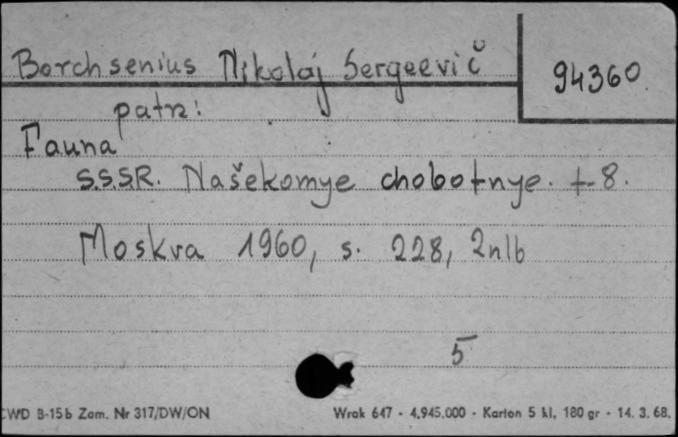 Borchsenius Nikolaj Sergeevič
94360
patrz:
Fauna
S.S.S.R. Našekomye chobotnye. t. 8.
Moskva 1960, s. 228, 2nlb
5
CWD B-15b Zam. Nr 317/DW/ON
Wrak 647 - 4.945.000 - Karton 5 kl. 180 gr - 14. 3. 68.